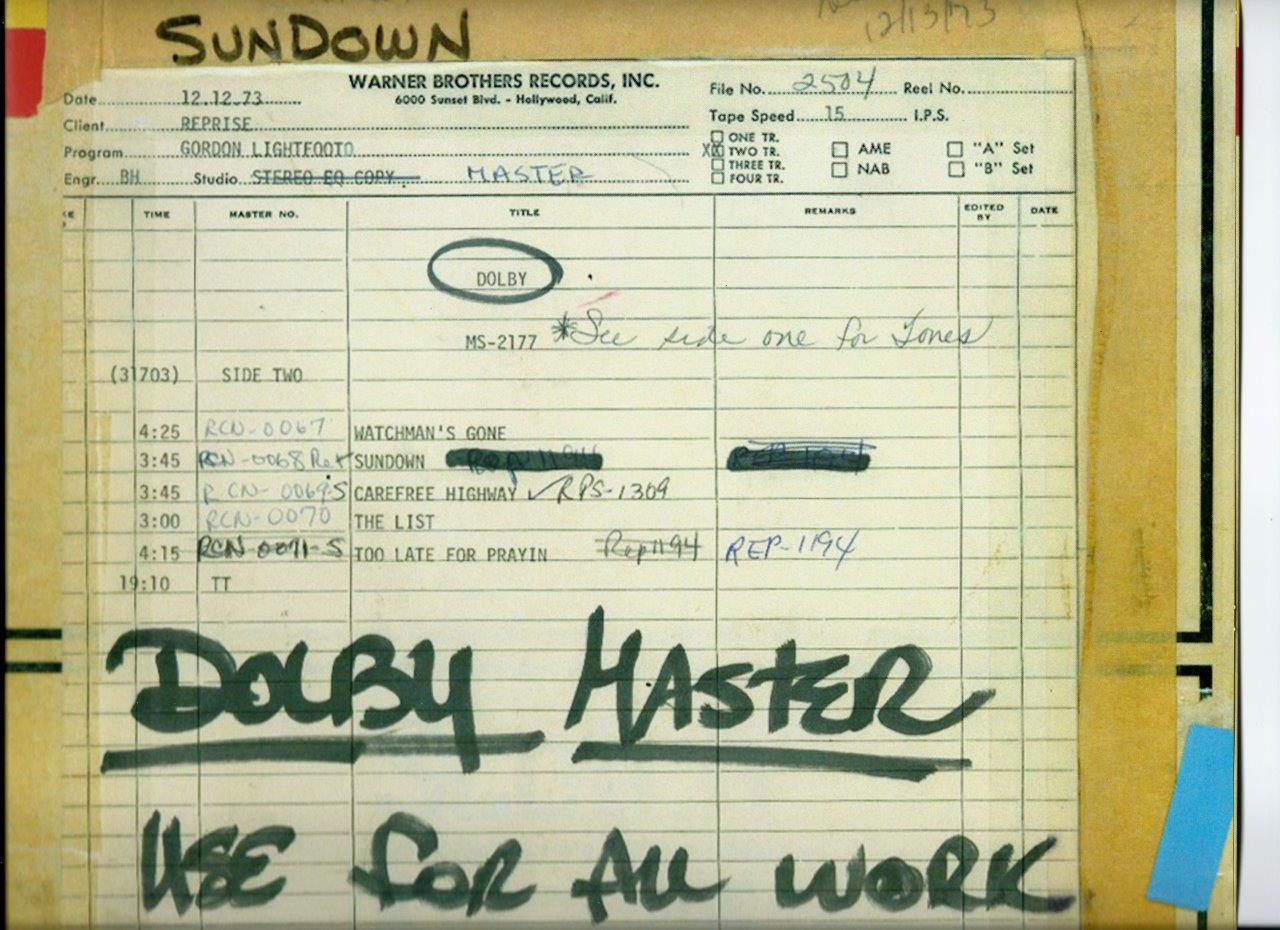 SUNDOWN
12/13/73
WARNER BROTHERS RECORDS, INC.
6000 Sunset Blvd. - Hollywood, Calif.
Date 12.12.73
File No. 2504 Reel No.
Client REPRISE
Tape Speed 15 I.P.S.
Program GORDON LIGHTFOOTO
ONE TR.
XX TWO TR. AME "A" Set
THREE TR. NAB "B" Set
FOUR TR.
Engr. BH Studio STEREO EQ COPY MASTER
TIME MASTER NO. TITLE REMARKS EDITED BY DATE
DOLBY
MS-2177 *See side one for Tones
(31703) SIDE TWO
4:25 RCN-0067 WATCHMAN'S GONE
3:45 RCN-0068 SUNDOWN
3:45 RCN-0069-S CAREFREE HIGHWAY ✓RPS-1309
3:00 RCN-0070 THE LIST
4:15 RCN-0071-S TOO LATE FOR PRAYIN Rep 1194 REP-1194
19:10 TT
DOLBY MASTER
USE FOR ALL WORK